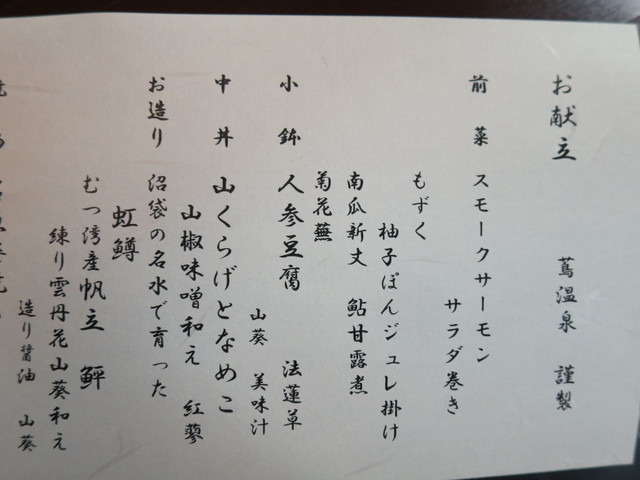 お献立 蔦温泉 謹製
前菜 スモークサーモン
サラダ巻き
もずく
柚子ぽんジュレ掛け
南瓜新丈 鮎甘露煮
菊花蕪
小鉢 人参豆腐 法蓮草
山葵 美味汁
中丼 山くらげとなめこ
山椒味噌和え 紅蓼
お造り 沼袋の名水で育った
虹鱒
むつ湾産帆立 鮃
練り雲丹花山葵和え
造り醤油 山葵